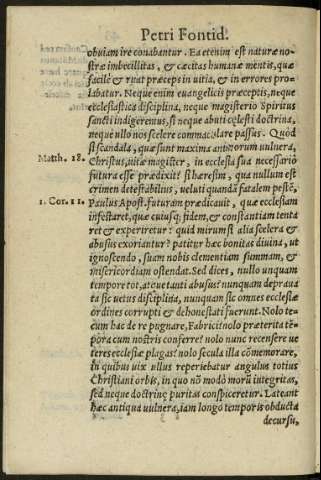 Petri Fontid.
obuiam ire conabantur. Ea etenim est naturæ no-
stræ imbecillitas, & cæcitas humanæ mentis, quæ
facilè & ruat præceps in uitia, & in errores pro-
labatur. Neque enim euangelicis præceptis, neque
ecclesiastica disciplina, neque magisterio Spiritus
sancti indigeremus, si neque abuti cœlesti doctrina,
neque ullo nos scelere commaculare passus. Quòd
si scandala, quæ sunt maxima animorum uulnera,
Matth. 18. Christus, uitæ magister, in ecclesia sua necessariò
futura esse prædixit? si hæresim, qua nullum est
crimen detestabilius, ueluti quandã fatalem pestẽ,
1. Cor. 11. Paulus Apost. futuram prædicauit, quæ ecclesiam
infestaret, quæ cuiusq; fidem, & constantiam tenta
ret & experiretur: quid mirum si alia scelera &
abusus exoriantur? patitur hæc bonitas diuina, ut
ignoscendo, suam nobis clementiam summam, &
misericordiam ostendat. Sed dices, nullo unquam
tempore tot, atque tanti abusus? nunquam depraua
ta sic uetus disciplina, nunquam sic omnes ecclesiæ
ordines corrupti & dehonestati fuerunt. Nolo te-
cum hac de re pugnare, Fabrici? nolo præterita tẽ-
pora cum nostris conferre? nolo nunc recensere ue
teres ecclesiæ plagas? nolo secula illa cõmemorare,
in quibus uix ullus reperiebatur angulus totius
Christiani orbis, in quo nõ modò morũ integritas,
sed neque doctrinę puritas conspiceretur. Lateant
hæc antiqua uulnera, iam longo temporis obducta
decursu,